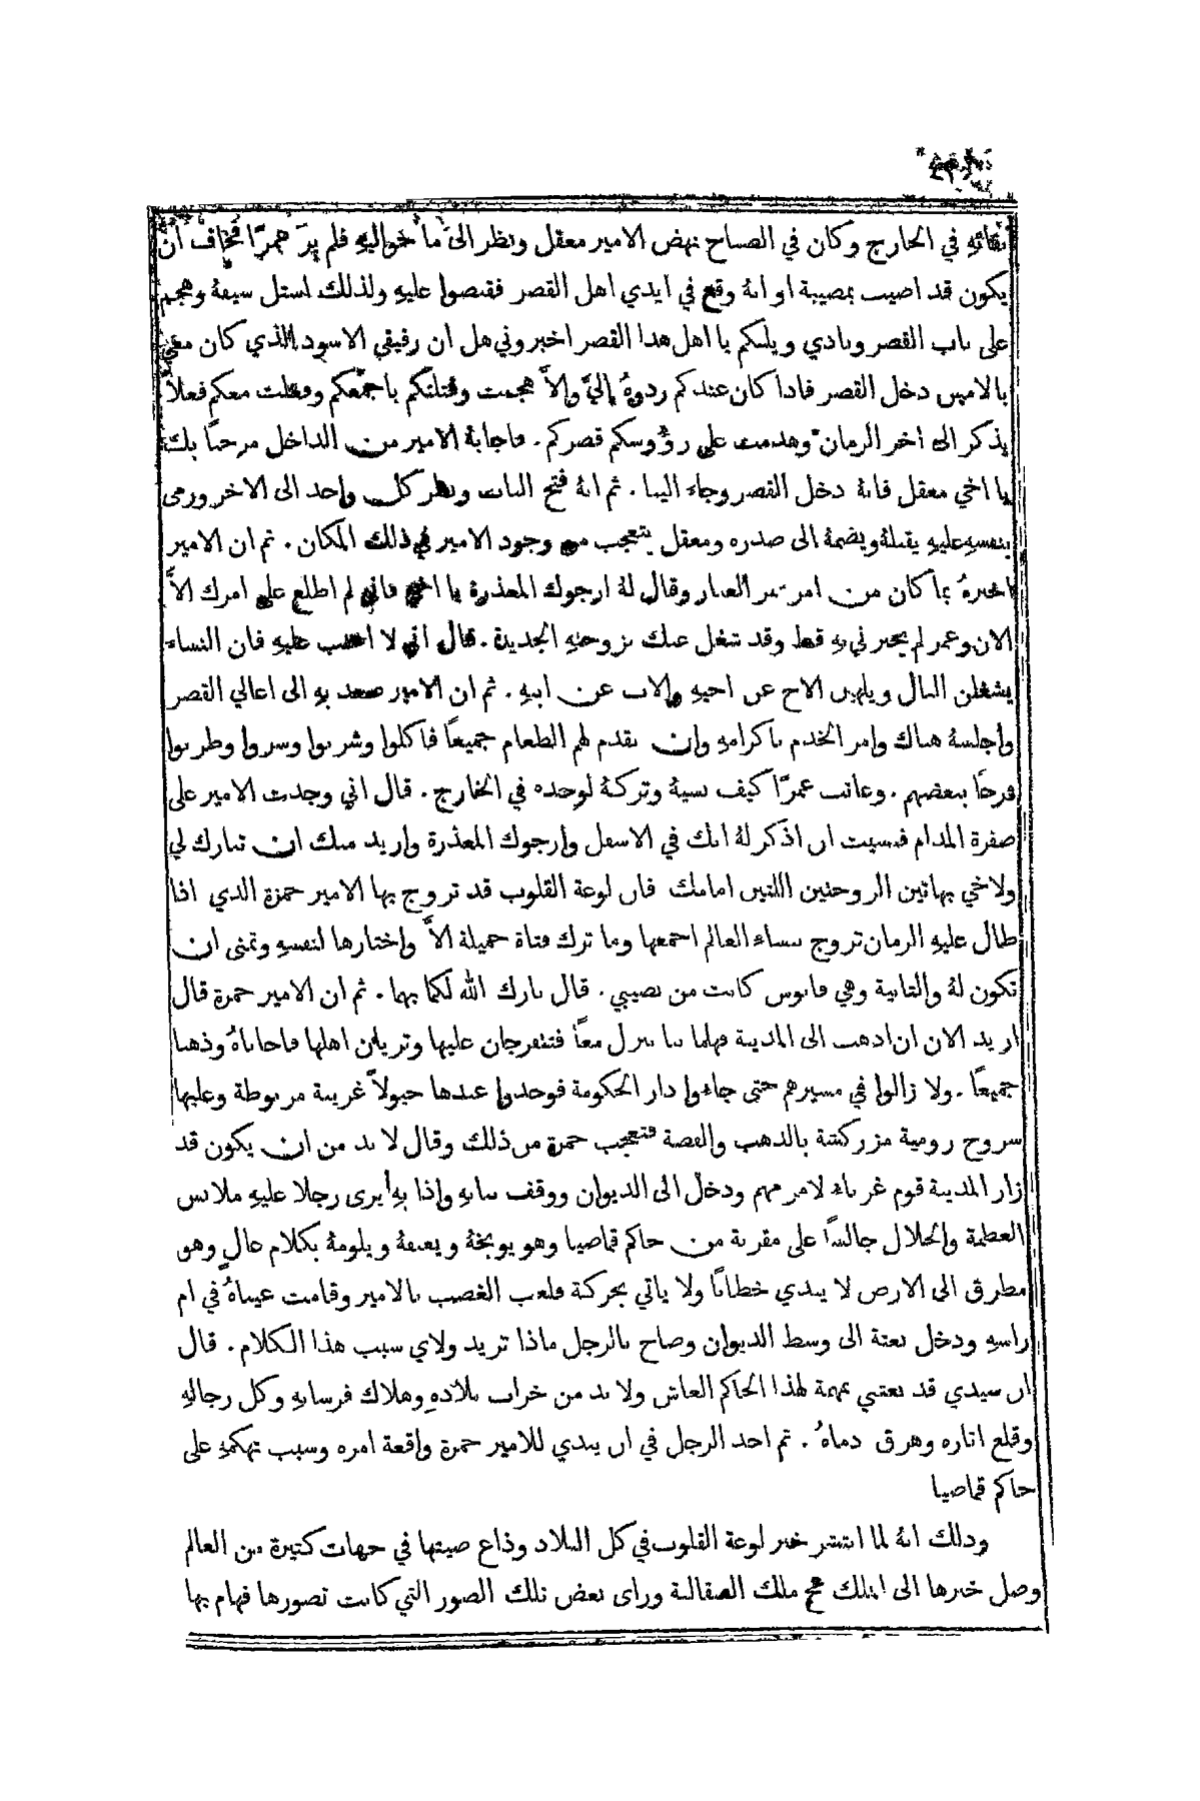 بقائهِ في الخارج وكان في الصباح نهض الامير معقل ونظر الى ما حواليهِ فلم يرَ عمرًا فخاف ان
يكون قد اصيب بمصيبة او انهُ وقع في ايدي اهل القصر فقبضوا عليهِ ولذلك استل سيفهُ وهجم
على باب القصر ونادى ويلكم يا اهل هذا القصر اخبروني هل ان رفيقي الاسود الذي كان معي
بالامس دخل القصر فاذا كان عندكم ردوهُ اليَّ والاَّ هجمت وقتلتكم باجمعكم وفعلت معكم فعلاً
يذكر الى اخر الزمان وهدمت على رؤوسكم قصركم . فاجابهُ الامير من الداخل مرحبًا بك
يا اخي معقل فانهُ دخل القصر وجاء الينا . ثم انهُ فتح الباب ونظر كل واحد الى الاخر ورمى
بنفسهِ عليهِ يقبلهُ ويضمهُ الى صدره ومعقل يتعجب من وجود الامير في ذلك المكان . ثم ان الامير
اخبرهُ بما كان من امر عمر العيار وقال لهُ ارجوك المعذرة يا اخي فاني لم اطلع على امرك الاَّ
الان وعمر لم يخبرني بهِ قط وقد شغل عنك بزوجتهِ الجديدة . قال اني لا اعتب عليهِ فان النساء
يشغلن البال ويلهين الاخ عن اخيهِ والاب عن ابنهِ . ثم ان الامير صعد بهِ الى اعالي القصر
واجلسهُ هناك وامر الخدم باكرامهِ وان يقدم لهم الطعام جميعًا فاكلوا وشربوا وسروا وطربوا
فرحًا ببعضهم . وعاتب عمرًا كيف نسيهُ وتركهُ لوحده في الخارج . قال اني وجدت الامير على
صفرة المدام فنسيت ان اذكر لهُ انك في الاسفل وارجوك المعذرة واريد منك ان تبارك لي
ولاخي بهاتين الزوجتين اللتين امامك فان لوعة القلوب قد تزوج بها الامير حمزة الذي اذا
طال عليهِ الزمان تزوج بنساء العالم اجمعها وما ترك فتاة جميلة الاَّ واختارها لنفسهِ وتمنى ان
تكون لهُ والثانية وهي فانوس كانت من نصيبي . قال بارك الله لكما بهما . ثم ان الامير حمزة قال
اريد الان ان اذهب الى المدينة فهلما بنا ننزل معًا فتتفرجان عليها وتريان اهلها فاجاباهُ وذهبا
جميعًا . ولا زالوا في مسيرهم حتى جاءوا دار الحكومة فوجدوا عندها خيولاً غريبة مربوطة وعليها
سروج رومية مزركشة بالذهب والفضة فتعجب حمزة من ذلك وقال لا بد من ان يكون قد
زار المدينة قوم غرباء لامر مهم ودخل الى الديوان ووقف ببابهِ واذا بهِ يرى رجلا عليهِ ملابس
العظمة والجلال جالسًا على مقربة من حاكم قماصيا وهو يوبخهُ ويعنفهُ ويلومهُ بكلام عالٍ وهو
مطرق الى الارض لا يبدي خطابًا ولا ياتي بحركة فلعب الغضب بالامير وقامت عيناهُ في ام
راسهِ ودخل بغتة الى وسط الديوان وصاح بالرجل ماذا تريد ولاي سبب هذا الكلام . قال
ان سيدي قد بعثني بمهمة لهذا الحاكم الغاش ولا بد من خراب بلادهِ وهلاك فرسانهِ وكل رجالهِ
وقلع اثاره وهرق دماهُ . ثم اخذ الرجل في ان يبدي للامير حمزة واقعة امره وسبب تهكمهِ على
حاكم قماصيا
وذلك انهُ لما انتشر خبر لوعة القلوب في كل البلاد وذاع صيتها في جهات كثيرة من العالم
وصل خبرها الى الملك ملك الصقالبة وراى بعض تلك الصور التي كانت تصورها فهام بها